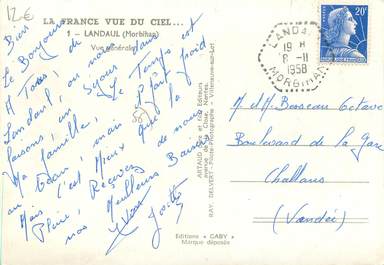 12€
LA FRANCE VUE DU CIEL...
1 - LANDAUL (Morbihan)
Vue générale
Bien
Le Bonjour de
A Tous, en séjour dans
Landaul, où nous
faisons, Le Temps est
Ma famille, Il fait froid
au Océan, mais
Mais c'est Mieux que la
Pluie, Recevez de nous
nos Meilleurs Baisers
Yvon
ARTAUD Père et Fils Editeurs
avenue de la Close, Nantes.
RAY. DELVERT - Pilote-Photographe - Villeneuve-sur-Lot
LANDAUL
19 H
8 - 11
1958
MORBIHAN
20F
M. et Mme Bosseau Octave
Boulevard de la Gare
Challans
(Vendée)
Editions « GABY »
Marque déposée